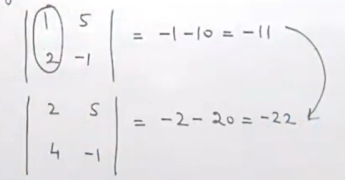 | 1 5 |
| 2 -1 | = -1-10 = -11
| 2 5 |
| 4 -1 | = -2-20 = -22